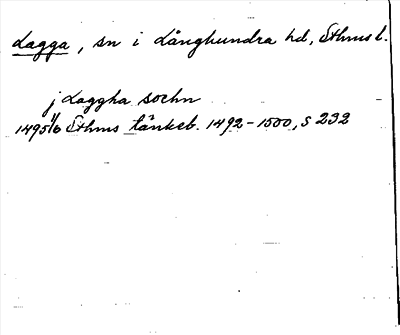 Lagga, sn i Långhundra hd, Sthms l.
j Laggha sochn
1495 1/6 Sthms tänkeb. 1492-1500, s 232